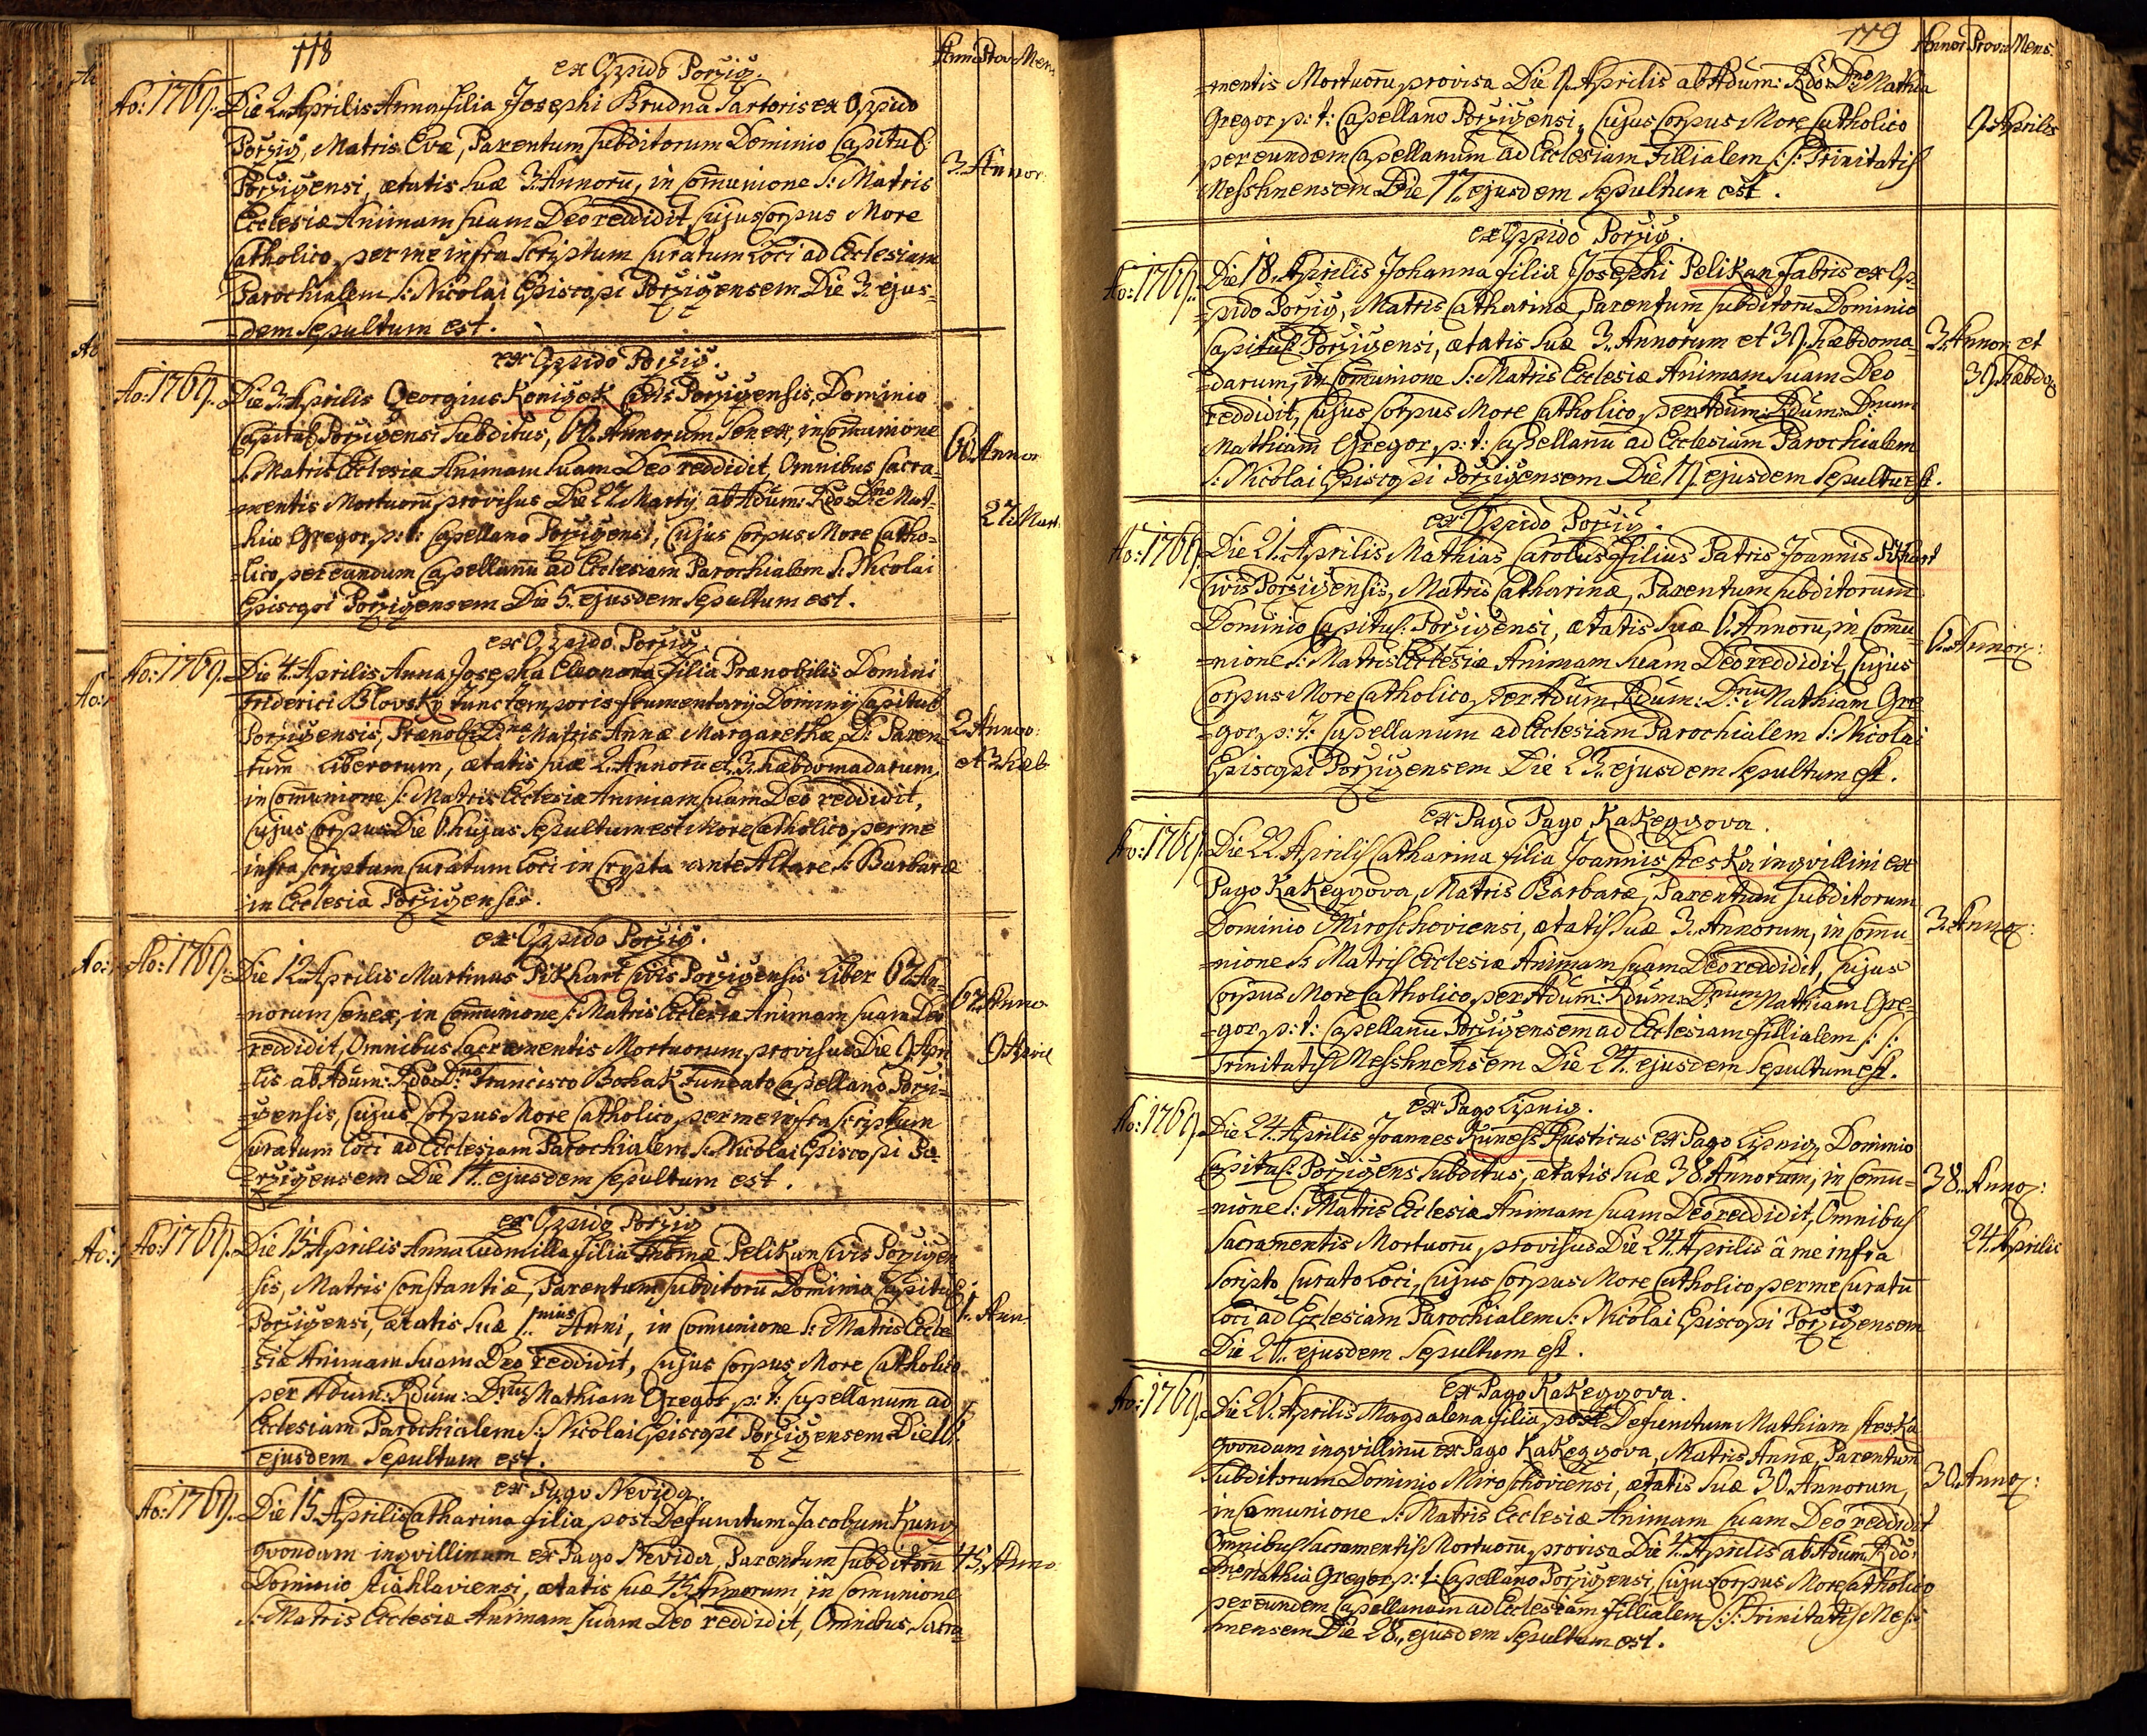 118
Annor Prov: Mens
ex Oppido Porzicz.
Ao: 1769. Die 2. Aprilis Anna filia Josephi Brudna Sartoris ex Oppido
Porzicz, Matris Evæ, Parentum subditorum Dominio Capitul:
Porzicensi, ætatis suæ 3. Annorū, in Comunione S: Matris
3. Annor:
Ecclesiæ Animam suam Deo reddidit, Cujus Corpus More
Catholico, per me infra scriptum Curatum Loci ad Ecclesiam
Parochialem S: Nicolai Episcopi Porzicensem Die 3. ejus-
-dem Sepultum est.
ex Oppido Porzicz.
Ao: 1769. Die 3. Aprilis Georgius Koniczek Civis Porzicensis, Dominio
Capitul: Porzicensi Subditus, 60. Annorum Senex, in Comunione
60. Annor
S: Matris Ecclesiæ Animam suam Deo reddidit, Omnibus Sacra-
-mentis Mortuorū provisus Die 27. Martij ab Adūm: Rdō: Dnō Mat-
27. Mart:
-hia Gregor, p: t: Capellano Porzicensi, Cujus Corpus More Catho-
-lico, per eundum Capellanū ad Ecclesiam Parochialem S: Nicolai
Episcopi Porzicensem Die 5. ejusdem Sepultum est.
ex Oppido Porzicz.
Ao: 1769. Die 4. Aprilis Anna Josepha Eleonora filia Prænobilis Domini
Friderici Blovsky tunc temporis frumentarij Dominij Capitul:
Porzicensis, Prænob: Dnæ Matris Annæ Margarethæ, D: Paren-
2. Annor:
-tum Liberorum, ætatis suæ 2. Annorū et 3. hæbdomadarum,
et 3. hæb:
in Comunione S: Matris Ecclesiæ Animam suam Deo reddidit,
Cujus Corpus Die 6. hujus Sepultum est More Catholico, per me
infra scriptum Curatum Loci in Crypta ante Altare S: Barbaræ
in Ecclesia Porzicensis.
ex Oppido Porzicz.
Ao: 1769. Die 12. Aprilis Martinus Pikhart Civis Porzicensis Liber 67. An-
-norum Senex, in Comunione S: Matris Ecclesiæ Animam suam Deo
67. Anno
reddidit, Omnibus Sacramentis Mortuorum, provisus Die 9. Apri
9. April
-lis ab Adum: Rdō: Dnō Francisco Bohak Fundato Capellano Porzi-
-censis, Cujus Corpus More Catholico, per me infra scriptum
Curatum Loci ad Ecclesiam Parochialem S: Nicolai Episcopi Po-
-rzicensem Die 14. ejusdem Sepultum est.
ex Oppido Porzicz
Ao: 1769. Die 15. Aprilis Anna Ludmilla filia Thomæ Pelikan Civis Porzicen-
sis, Matris Constantiæ, Parentum subditorū Dominio Capitul:
Porzicensi, ætatis suæ 1. nius Anni, in Comunione S: Matris Eccle-
1. Ann.
siæ Animam suam Deo reddidit, Cujus Corpus More Catholico
per Adum: Rdūm: Dnū Mathiam Gregor, p: t: Capellanum ad
Ecclesiam Parochialem S: Nicolai Episcopi Porzicensem Die 16.
ejusdem Sepultum est.
ex Pago Nevida.
Ao: 1769. Die 15. Aprilis Catharina filia post Defunctum Jacobum Kuncz
qvondam inqvillinum ex Pago Nevida, Parentum subditorū
45. Anno
Dominio Stiahlaviensi, ætatis suæ 45. Annorum, in Comunione
S: Matris Ecclesiæ Animam suam Deo reddidit, Omnibus Sacra-
119
Annor Prov: Mens:
-mentis Mortuorū, provisa Die 9. Aprilis ab Adum: Rdō: Dnō Mathia
Gregor, p: t: Capellano Porzicensi, Cujus Corpus More Catholico
9. Aprilis
per eundem Capellanum ad Ecclesiam Fillialem S: S: Trinitatis
Messhnensem Die 17. ejusdem Sepultum est.
ex Oppido Porzicz.
Ao: 1769. Die 18. Aprilis Johanna filia Josephi Pelikan Fabris ex Op-
-pido Porzicz, Matris Catharinæ, Parentum subditorū Dominio
Capitul: Porzicensi, ætatis suæ 3. Annorum et 39. hæbdoma-
3. Annor: et
-darum, in Comunione S: Matris Ecclesiæ Animam suam Deo
39. hæbdo:
reddidit, Cujus Corpus More Catholico, per Adum: Rdum: Dnum
Mathiam Gregor, p: t: Capellanū ad Ecclesiam Parochialem
S: Nicolai Episcopi Porzicensem Die 19. ejusdem Sepultū est.
ex Oppido Porzicz.
Ao: 1769. Die 21. Aprilis Mathias Carolus Filius Patris Joannis Pikhart
Civis Porzicensis, Matris Catharinæ, Parentum subditorum
Dominio Capitul: Porzicensi, ætatis suæ 6. Annorū, in Comu-
6. Annor:
-nione S: Matris Ecclesiæ Animam suam Deo reddidit, Cujus
Corpus More Catholico, per Adum: Rdum: Dnū Mathiam Gre-
-gor, p: t: Capellanum ad Ecclesiam Parochialem S: Nicolai
Episcopi Porzicensem Die 23. ejusdem Sepultum est.
ex Pago Pago Kakeyzova.
Ao: 1769. Die 22. Aprilis Catharina filia Joannis Steska inqvillini ex
Pago Kakeyzova, Matris Barbaræ, Parentum subditorum
Dominio Miroschoviensi, ætatis suæ 3. Annorum, in Comu-
3. Annor:
-nione S: Matris Ecclesiæ Animam suam Deo reddidit, Cujus
Corpus More Catholico, per Adum: Rdum: Dnum Mathiam Gre-
-gor, p: t: Capellanū Porzicensem ad Ecclesiam Fillialem S: S:
Trinitatis Messhnensem Die 24. ejusdem Sepultum est.
ex Pago Lipnicz.
Ao: 1769. Die 24. Aprilis Joannes Kuness Rusticus ex Pago Lipnicz, Dominio
Capitul: Porzicens: Subditus, ætatis suæ 38. Annorum, in Comu-
38. Annor:
-nione S: Matris Ecclesiæ Animam suam Deo reddidit, Omnibus
Sacramentis Mortuorū, provisus Die 24. Aprilis â me infra
24. Aprilis
Scripto Curato Loci, Cujus Corpus More Catholico, per me Curatū
Loci ad Ecclesiam Parochialem S: Nicolai Episcopi Porzicensem
Die 26. ejusdem Sepultum est.
Ex Pago Kakeyzova.
Ao: 1769. Die 26. Aprilis Magdalena filia, post Defunctum Mathiam Steska
qvondam inqvillinū ex Pago Kakeyzova, Matris Annæ, Parentum
Subditorum Dominio Miroschoviensi, ætatis suæ 30. Annorum,
30. Annor:
in Comunione S: Matris Ecclesiæ Animam suam Deo reddidit
Omnibus Sacramentis Mortuorū, provisa Die 4. Aprilis ab Adum: Rdō:
Dnō Mathia Gregor p: t: Capellano Porzicensi, Cujus Corpus More Catholico
per eundem Capellanum ad Ecclesiam Fillialem S: S: Trinitatis Mess-
hnensem Die 28. ejusdem Sepultum est.